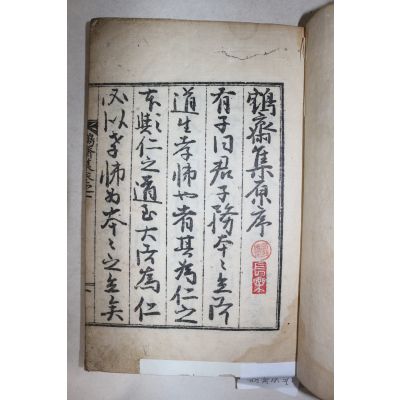 鶴齋集原序
有子曰君子務本〻立而
道生孝悌也者其為仁之
本歟仁之道至大而為仁
必以孝悌為本〻之立矣